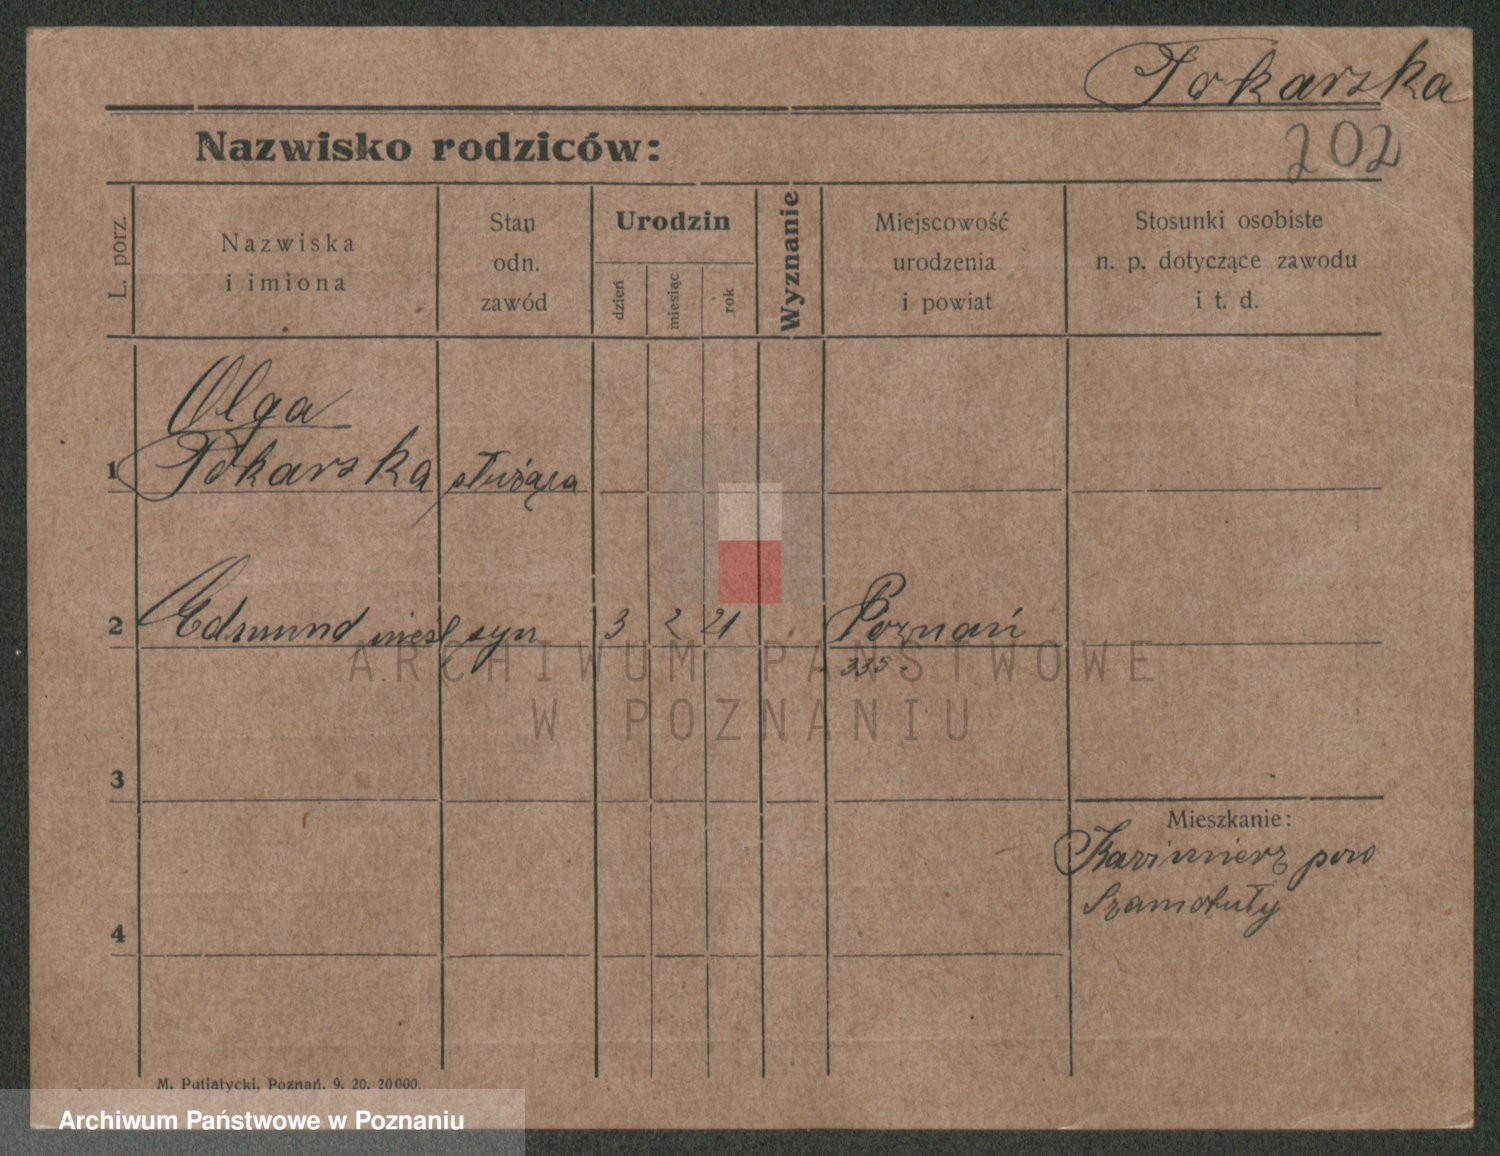 Tokarska
202
Nazwisko rodziców:
L. porz.
Nazwiska
i imiona
Stan
odn.
zawód
Urodzin
dzień
miesiąc
rok
Wyznanie
Miejscowość
urodzenia
i powiat
Stosunki osobiste
n. p. dotyczące zawodu
i t. d.
Olga
1 Tokarska służąca
2 Edmund nieśl syn 3 2 21 Poznań
335.
ARCHIWUM PAŃSTWOWE
W POZNANIU
3
Mieszkanie:
Kazimierz pow
Szamotuły
4
M. Putiatycki, Poznań. 9. 20. 20000.
Archiwum Państwowe w Poznaniu